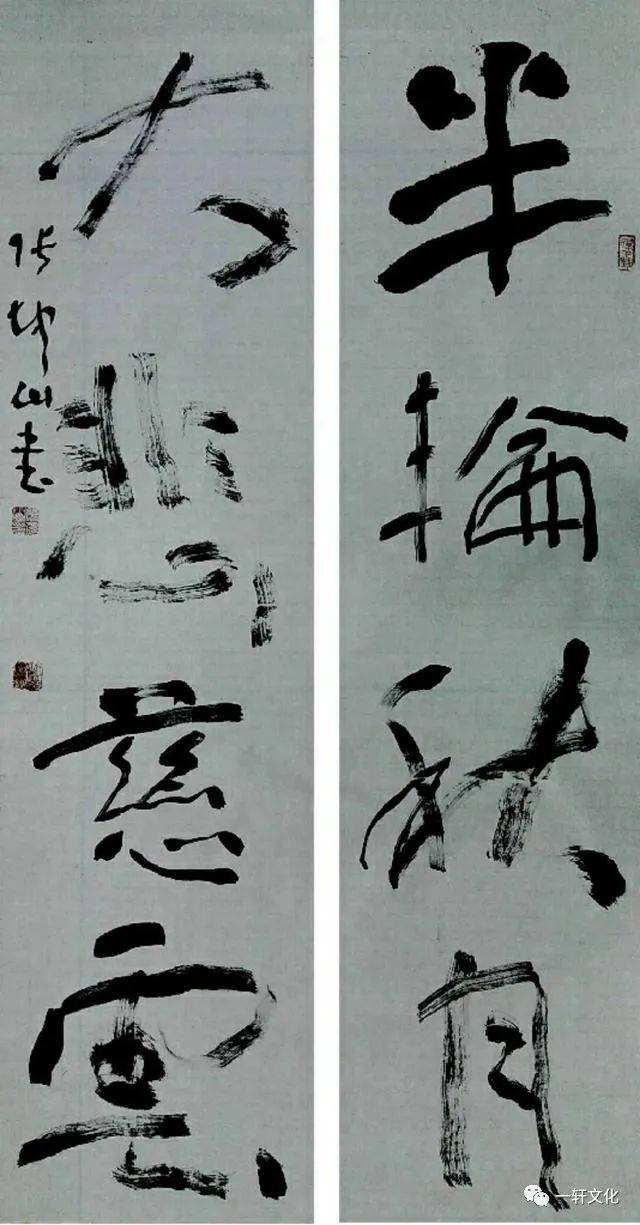 半輪秋月
大悲慈雲
张仲山書
一轩文化